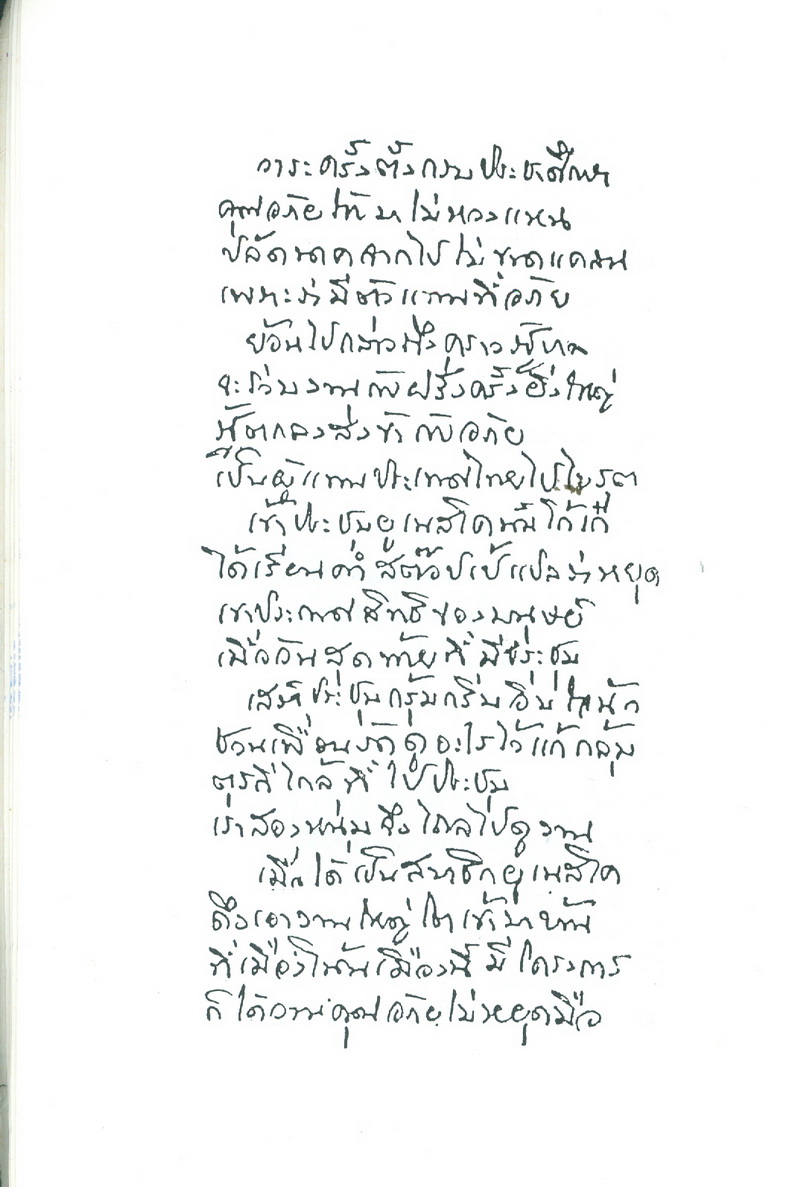 วาระครั้งตั้งกรมประชาศึกษา
คุณอภัยให้มาไม่หวงแหน
ปลัดขาดจากไปไม่ขาดแคลน
เพราะว่ามีตัวแทนที่อภัย
ย้อนไปกล่าวถึงคราว
จะร่วมงานกับฝรั่งครั้งยิ่งใหญ่
ตกลงส่งข้ากับอภัย
เป็นผู้แทนประเทศไทยไปไบรุต
เข้าประชุมยูเนสโคนั้นโก้เก๋
ได้เรียนคำสต๊อปเป้แปลว่าหยุด
เขาประกาศสิทธิของมนุษย์
เมื่อวันสุดท้ายที่มีประชุม
เสร็จประชุมกรุ้มกริ่มอิ่มใจนัก
ชวนเพื่อนรักดูอะไรไว้แก้กลุ้ม
ตุรกีใกล้ที่ไปประชุม
เราสองหนุ่มจึงไถลไปดูงาน
เมื่อได้เป็นสมาชิกยูเนสโค
ถึงเอางานใหญ่โตเข้ามา
ที่เมืองโน้นเมืองนี้มีโครงการ
ก็ได้วานคุณอภัยไม่หยุดมือ